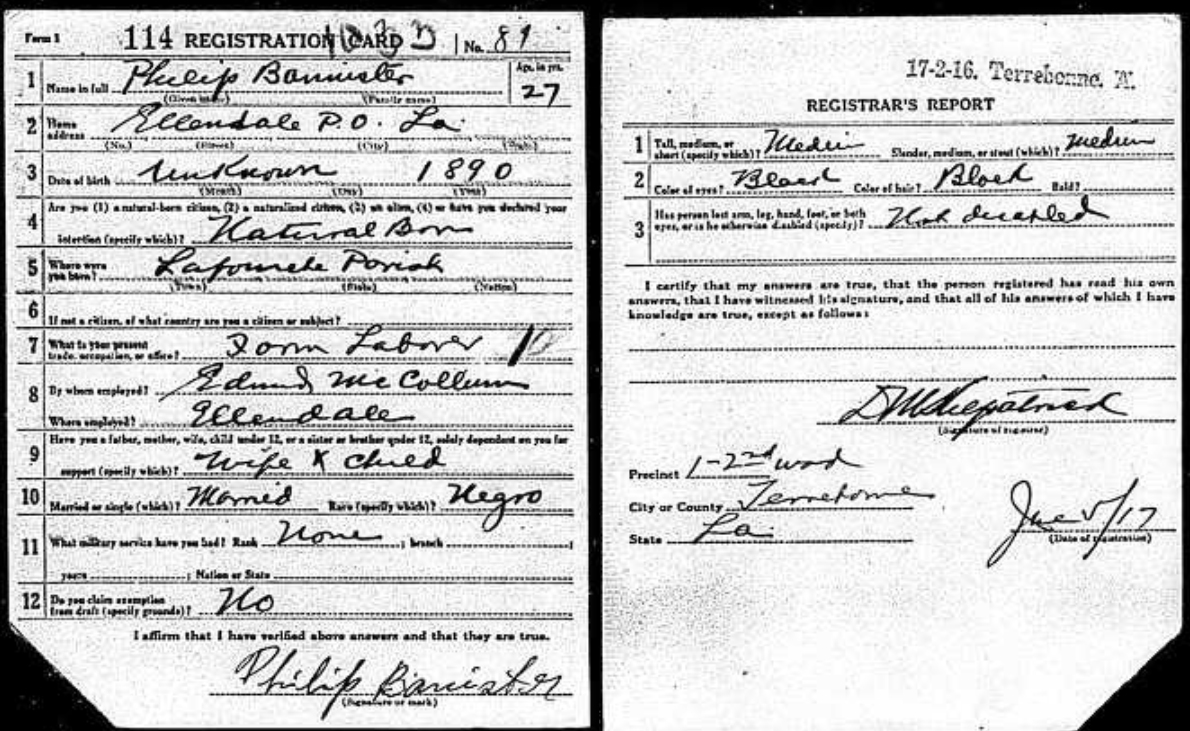 Form 1 114 REGISTRATION CARD No. 81
1 Name in full Philip Bannister Age, in yrs. 27
(Given name) (Family name)
2 Home address Ellendale P.O. La.
(No.) (Street) (City) (State)
3 Date of birth Unknown 1890
(Month) (Day) (Year)
4 Are you (1) a natural-born citizen, (2) a naturalized citizen, (3) an alien, (4) or have you declared your
intention (specify which)? Natural Born
5 Where were you born? Lafourche Parish
(Town) (State) (Nation)
6 If not a citizen, of what country are you a citizen or subject?
7 What is your present trade, occupation, or office? Farm Laborer
8 By whom employed? Edmund McCollum
Where employed? Ellendale
9 Have you a father, mother, wife, child under 12, or a sister or brother under 12, solely dependent on you for
support (specify which)? Wife & child
10 Married or single (which)? Married Race (specify which)? Negro
11 What military service have you had? Rank None ; branch ;
years ; Nation or State
12 Do you claim exemption from draft (specify grounds)? No
I affirm that I have verified above answers and that they are true.
Philip Banister
(Signature or mark)
17-2-16. Terrebonne. A.
REGISTRAR'S REPORT
1 Tall, medium, or short (specify which)? Medium Slender, medium, or stout (which)? medium
2 Color of eyes? Black Color of hair? Black Bald?
3 Has person lost arm, leg, hand, foot, or both
eyes, or is he otherwise disabled (specify)? Not disabled
I certify that my answers are true, that the person registered has read his own
answers, that I have witnessed his signature, and that all of his answers of which I have
knowledge are true, except as follows:
(Signature of registrar)
Precinct 1-2nd ward
City or County Terrebonne
State La. June 5/17
(Date of registration)